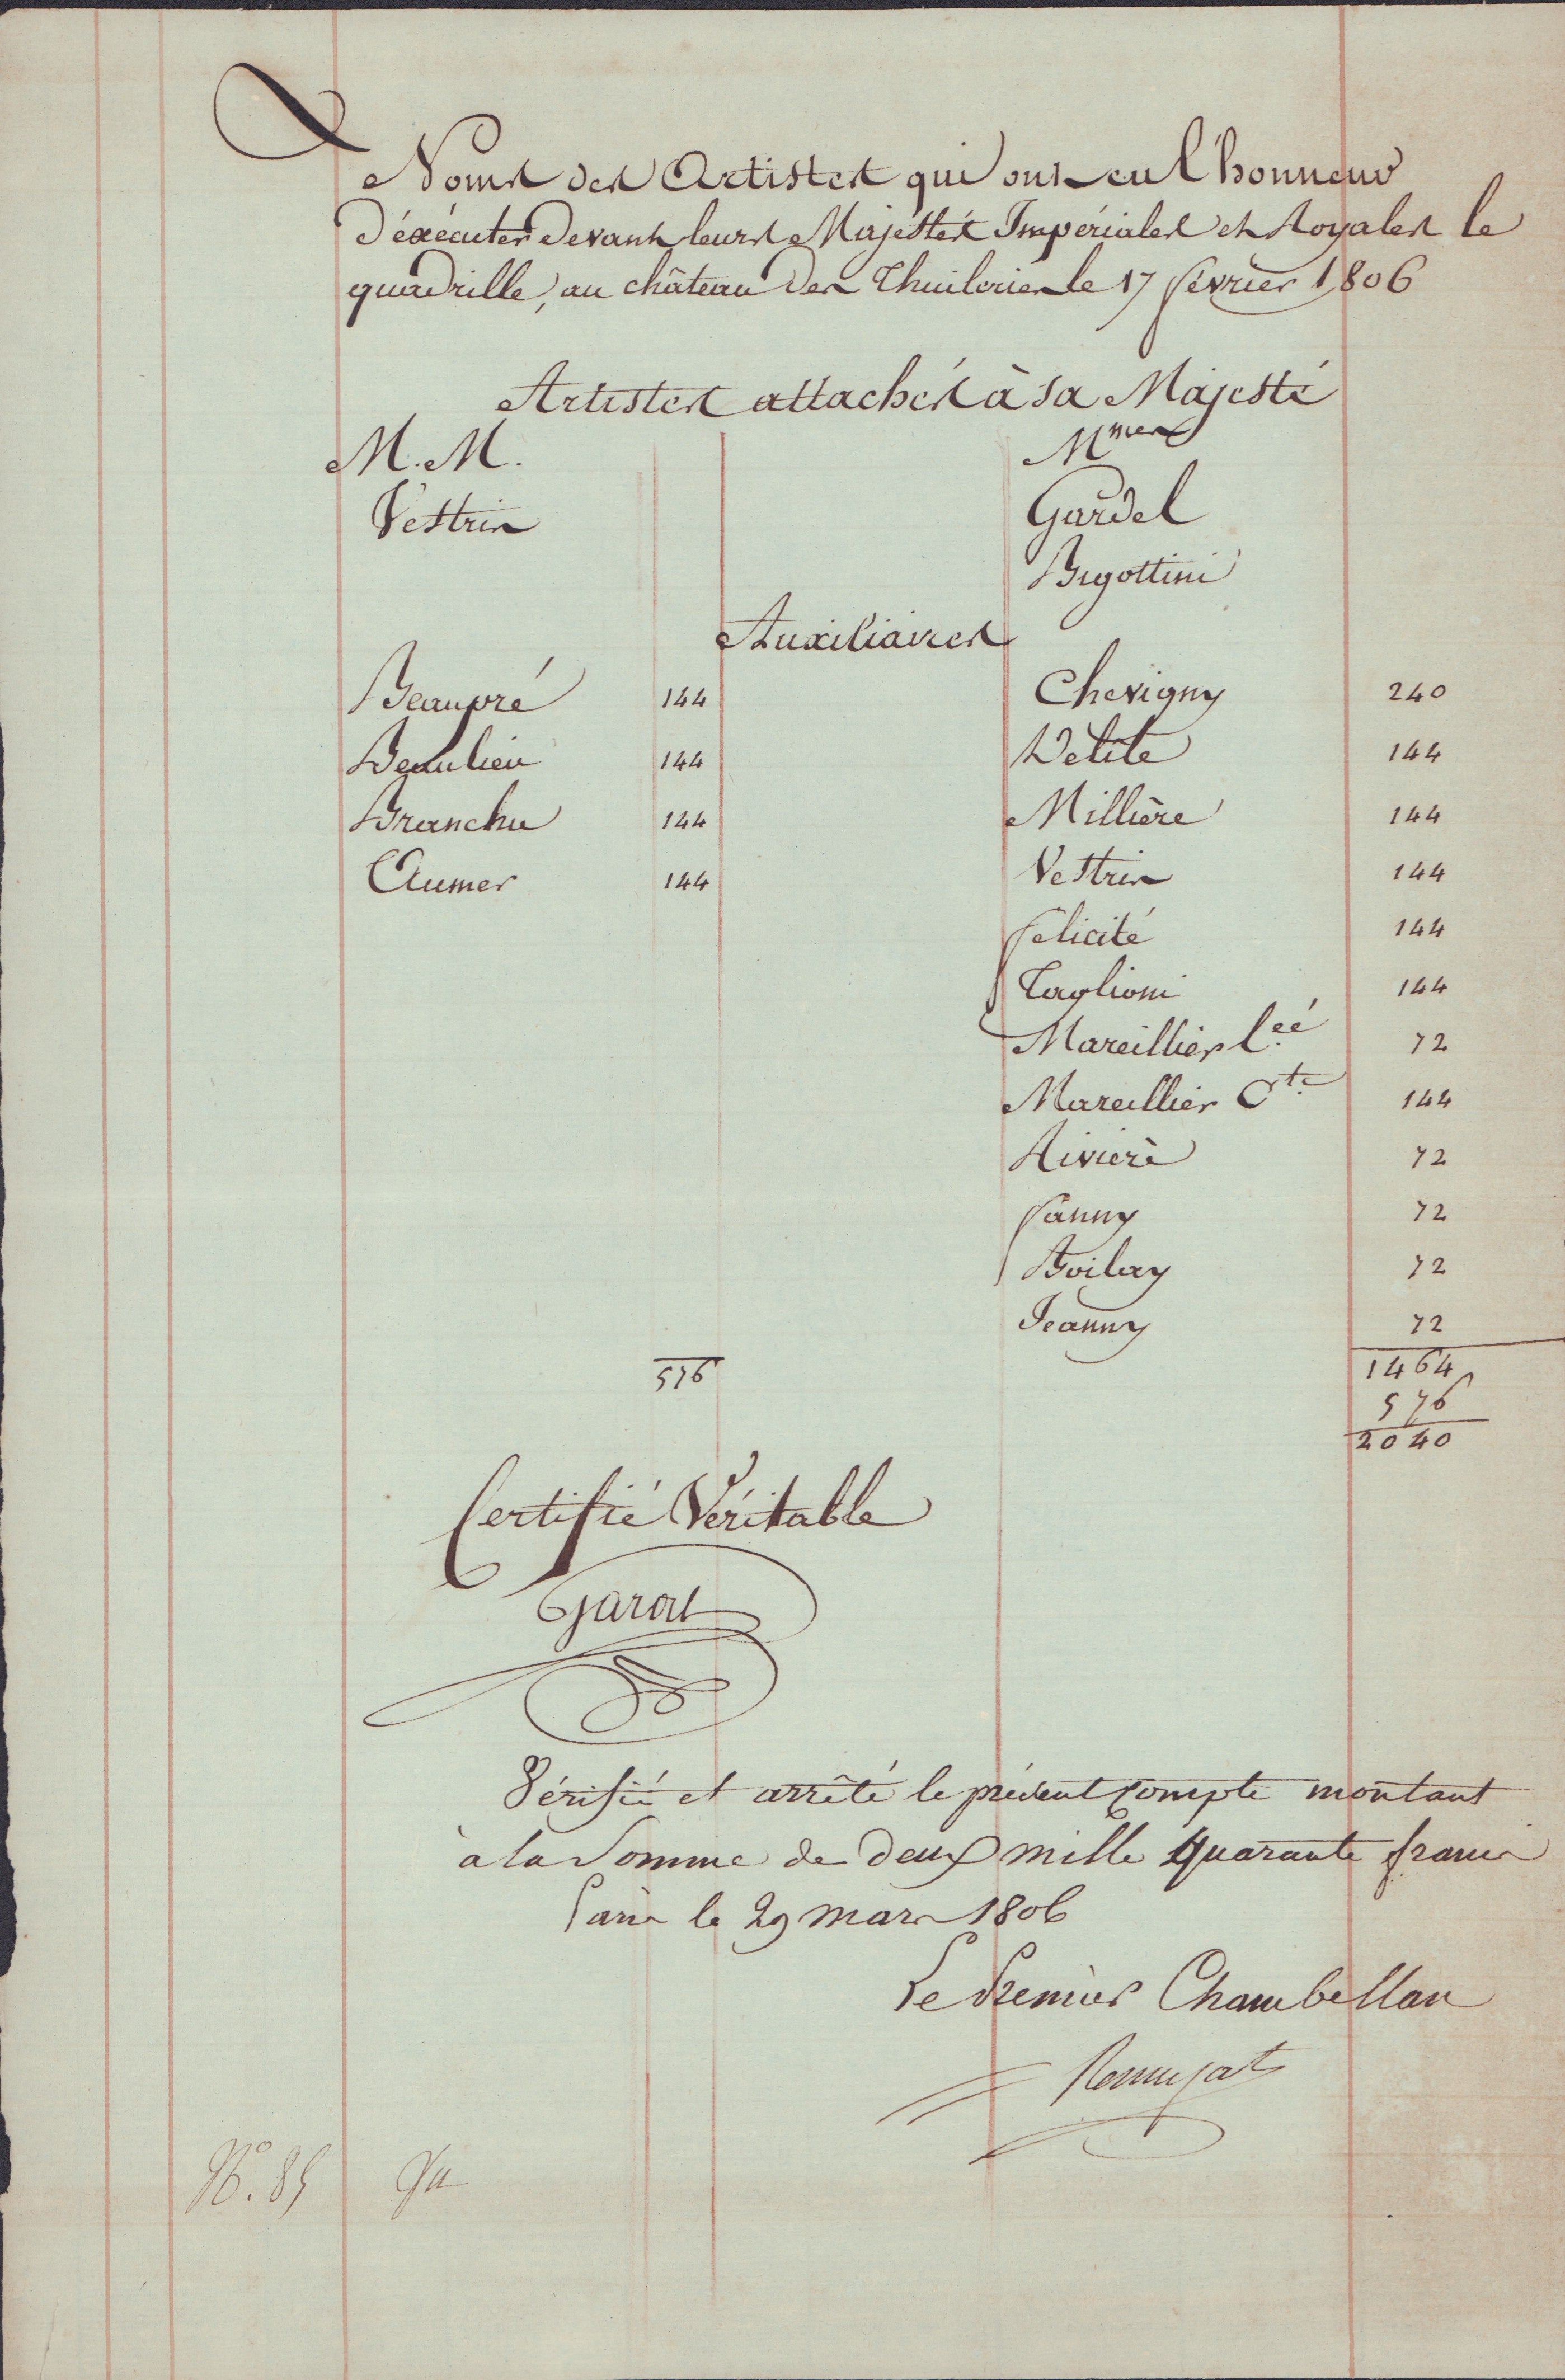 Noms des Artistes qui ont eu l'honneur
d'éxécuter devant leurs Majestés Impériales et Royales le
quadrille, au château des Thuileries le 17 février 1806
Artistes attachés à sa Majesté
M.M. Mmes
Vestris Gardel
Bigottini
Auxiliaires
Beaupré 144 Chevigny 240
Beaulieu 144 Delile 144
Branchu 144 Millière 144
Aumer 144 Vestris 144
felicité 144
Taglioni 144
Mareillier l.ée 72
Mareillier C.te 144
Riviere 72
fanny 72
Boilay 72
Jeanny 72
576 1464
576
2040
Certifié Véritable
Gardel
Vérifié et arrêté le présent compte montant
à la Somme de deux mille quarante francs
Paris le 29 mars 1806
Le Premier Chambellan
Remusat
N.o 85